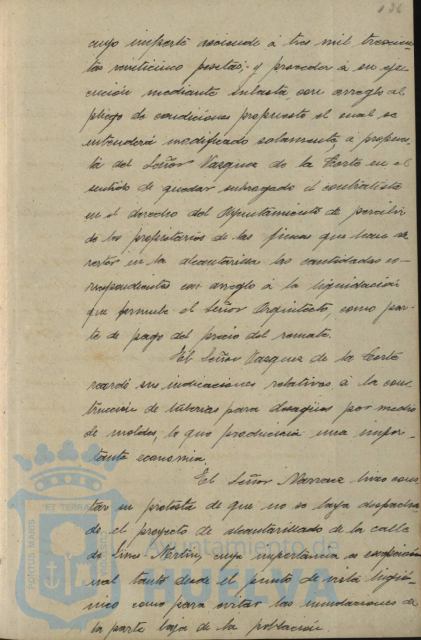 136
cuyo importe asciende á tres mil trescien-
tas veinticinco pesetas; y proceder á su eje-
cución mediante subasta, con arreglo al
pliego de condiciones propuesto el cual se
entenderá modificado solamente, á propues-
ta del Señor Vazquez de la Corte en el
sentido de quedar subrogado el contratista
en el derecho del Ayuntamiento de percibir
de los propietarios de las fincas que han de
verter en la alcantarilla las cantidades co-
rrespondientes con arreglo á la liquidación
que formule el Señor Arquitecto, como par-
te de pago del precio del remate.
El Señor Vazquez de la Corte
recordó sus indicaciones relativas á la cons-
trucción de tuberias para desagües por medio
de moldes, lo que produciria una impor-
tante economia.
El Señor hizo cons-
tar su protesta de que no se haya despacha-
do el proyecto de alcantarillado de la calle
de Martin, cuya importancia es excepcio-
nal tanto desde el punto de vista higié-
nico como para evitar las inundaciones de
la parte baja de la población.
PORTUS MARIS
ET TERRAE
Ayuntamiento de
HUELVA